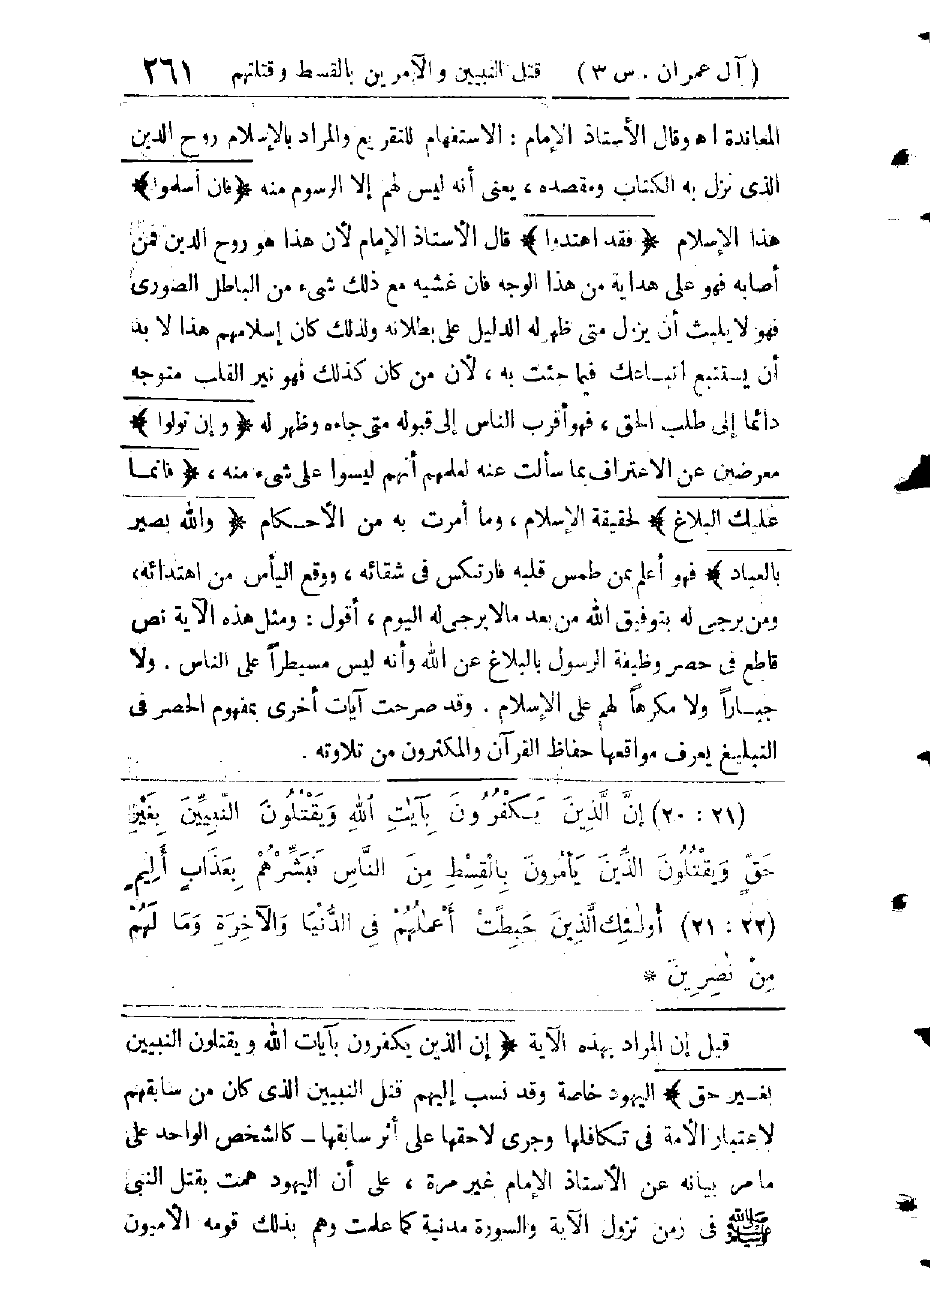 ( آل عمران . س ٣ ) قتل النبيين والآمرين بالقسط وقتلتهم ٢٦١
المعاندة اه وقال الأستاذ الإمام : الاستفهام للتقريع والمراد بالإسلام روح الدين
الذى نزل به الكتاب ومقصده ، يعنى أنه ليس لهم إلا الرسوم منه ﴿ فان أسلموا ﴾
هذا الإسلام ﴿ فقد اهتدوا ﴾ قال الأستاذ الإمام لأن هذا هو روح الدين فمن
أصابه فهو على هداية من هذا الوجه فان غشيه مع ذلك شىء من الباطل الصورى
فهو لا يلبث أن يزل متى ظهر له الدليل على بطلانه ولذلك كان إسلامهم هذا لا بد
أن يستتبع اتباعك فيما جئت به ، لأن من كان كذلك فهو نير القلب متوجه
دائما إلى طلب الحق ، فهو أقرب الناس إلى قبوله متى جاءه وظهر له ﴿ وإن تولوا ﴾
معرضين عن الاعتراف بما سألت عنه لعلمهم أنهم ليسوا على شىء منه ، ﴿ فانما
عليك البلاغ ﴾ لحقيقة الإسلام ، وما أمرت به من الأحكام ﴿ والله بصير
بالعباد ﴾ فهو أعلم بمن طمس قلبه فارتكس فى شقائه ، ووقع اليأس من اهتدائه،
ومن يرجى له بتوفيق الله من بعد مالا يرجى له اليوم ، أقول : ومثل هذه الآية نص
قاطع فى حصر وظيفة الرسول بالبلاغ عن الله وأنه ليس مسيطراً على الناس . ولا
جباراً ولا مكرهاً لهم على الإسلام . وقد صرحت آيات أخرى بمفهوم الحصر فى
التبليغ يعرف مواقعها حفاظ القرآن والمكثرون من تلاوته .
(٢١ : ٢٠) إِنَّ الَّذِينَ يَكْفُرُونَ بِآيَاتِ اللهِ وَيَقْتُلُونَ النَّبِيِّينَ بِغَيْرِ
حَقٍّ وَيَقْتُلُونَ الَّذِينَ يَأْمُرُونَ بِالْقِسْطِ مِنَ النَّاسِ فَبَشِّرْهُمْ بِعَذَابٍ أَلِيمٍ
(٢٢ : ٢١) أُولَـٰئِكَ الَّذِينَ حَبِطَتْ أَعْمَـٰلُهُمْ فِى الدُّنْيَا وَالْآخِرَةِ وَمَا لَهُمْ
مِنْ نَـٰصِرِينَ *
قيل إن المراد بهذه الآية ﴿ إن الذين يكفرون بآيات الله ويقتلون النبيين
بغير حق ﴾ اليهود خاصة وقد نسب إليهم قتل النبيين الذى كان من سابقهم
لاعتبار الأمة فى تكافلها وجرى لاحقها على أثر سابقها ـ كالشخص الواحد على
ما مر بيانه عن الأستاذ الإمام غير مرة ، على أن اليهود همت بقتل النبى
ﷺ فى زمن نزول الآية والسورة مدنية كما علمت وهم بذلك قومه الأميون